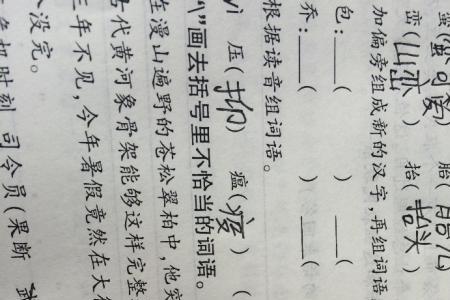 胎(胎儿)
峦(山峦) 抬(抬头)
加偏旁组成新的汉字,再组词语
包:____( ) ____(
乔:____( ) ____(
根据读音组词语。
yì 压(抑) 瘟(疫) (
\”画去括号里不恰当的词语。
在漫山遍野的苍松翠柏中,他突
代黄河象骨架能够这样完整
三年不见,今年暑假竟然在大
没完。
机时刻,司令员(果断 武